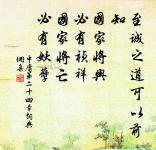 至誠之道可以前
知
國家將興
必有禎祥
國家將亡
必有妖孽
中庸第二十四章詞典